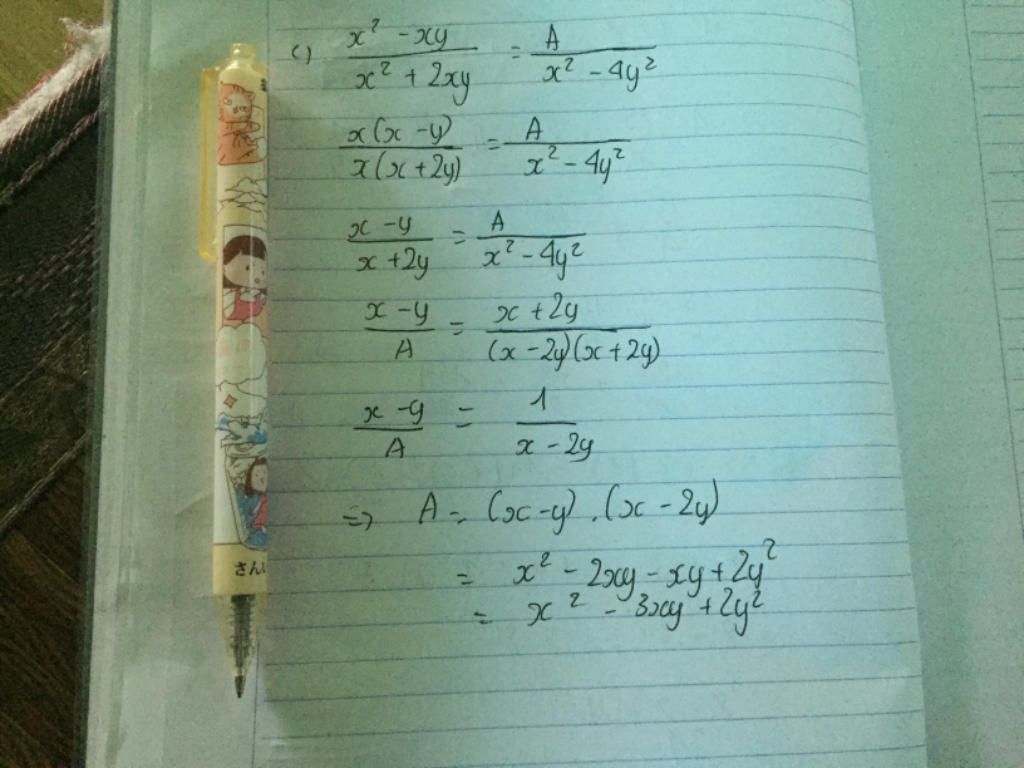 c) \frac{x^2 - xy}{x^2 + 2xy} = \frac{A}{x^2 - 4y^2}
\frac{x(x - y)}{x(x + 2y)} = \frac{A}{x^2 - 4y^2}
\frac{x - y}{x + 2y} = \frac{A}{x^2 - 4y^2}
\frac{x - y}{A} = \frac{x + 2y}{(x - 2y)(x + 2y)}
\frac{x - y}{A} = \frac{1}{x - 2y}
=> A = (x - y) . (x - 2y)
= x^2 - 2xy - xy + 2y^2
= x^2 - 3xy + 2y^2